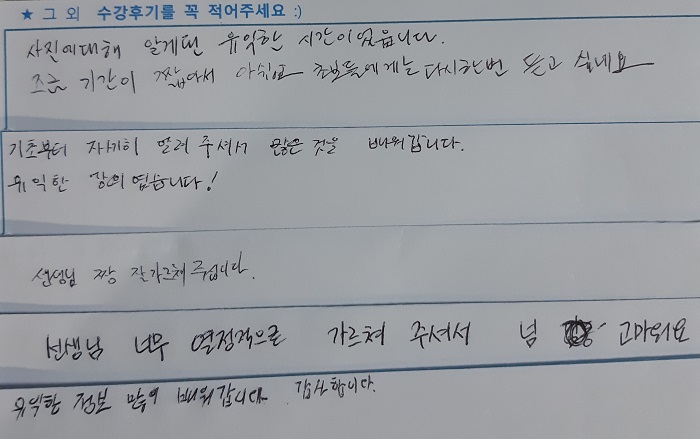 ★ 그 외 수강후기를 꼭 적어주세요 :)
사진에대해 알게된 유익한 시간이었습니다.
조금 기간이 짧아서 아쉽고 초보들에게는 다시한번 듣고 싶네요
기초부터 자세히 알려 주셔서 많은 것을 배워갑니다.
유익한 강의 였습니다!
선생님 짱 잘가르쳐 주십니다.
선생님 너무 열정적으로 가르쳐 주셔서 넘 고마워요
유익한 정보 많이 배워갑니다. 감사합니다.